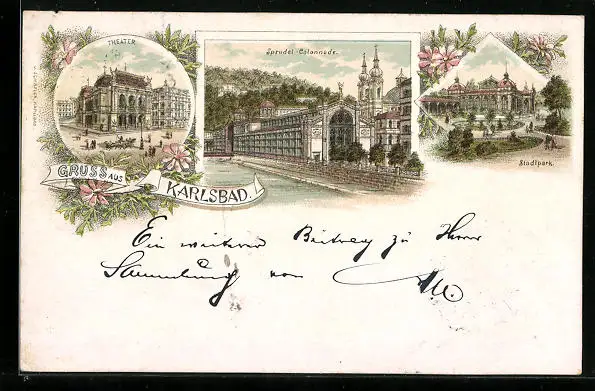 THEATER
Sprudel-Colonnade.
Stadtpark.
GRUSS AUS
KARLSBAD.
Ein weiterer Beitrag zu Ihrer
Sammlung von